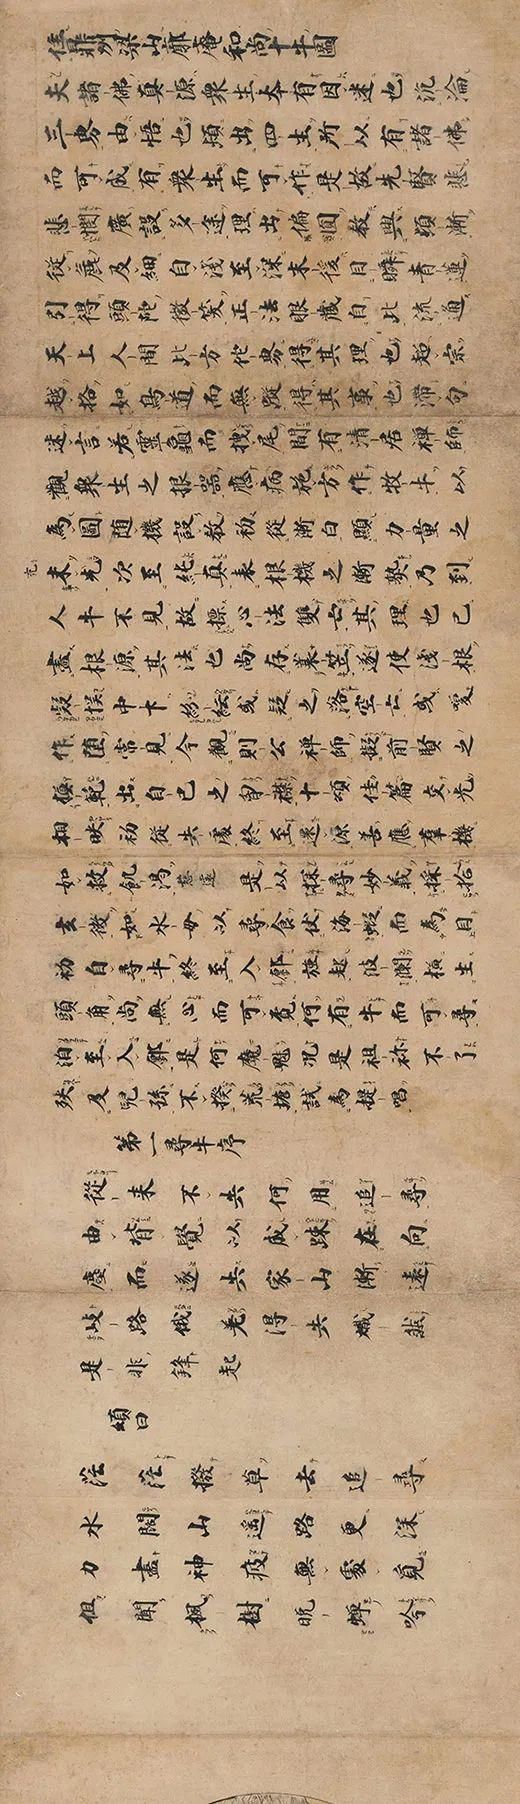 住鼎州梁山廓庵和尚十牛圖
夫諸佛真源衆生本有因迷也沉淪
三界由悟也頓出四生所以有諸佛
而可成有衆生而可作是故先賢悲
悲憫廣設多途理出偏圓教興頓漸
從麁及細自淺至深末後目瞬青蓮
引得頭陀微笑正法眼藏自此流通
天上人間此方他界得其理也超宗
越格如鳥道而無蹤得其事也滯句
迷言若靈龜而拽尾間有清居禪師
觀衆生之根器應病施方作牧牛以
為圖随機設教初從漸白顯力量之
充
未光次至純真表根機之漸熟乃到
人牛不見故摽心法雙亡其理也已
盡根源其法也尚存笠遂使淺根
疑悮中下紛紜或疑之落空亡或喚
作堕常見今觀則公禪師擬前賢之
模範出自己之胷襟十頌佳篇交光
相映初從失處終至還源善應羣機
如救飢渴慈遠是以探尋妙義採拾
玄微如水母以尋食依海蝦而為目
初自尋牛終至入鄽強起波瀾橫生
頭角尚無心而可覓何有牛而可尋
洎至入鄽是何魔魅况是祖祢不了
殃及兒孫不揆荒塘試為提唱
第一尋牛序
從来不失何用追尋
由背覺以成踈在向
塵而遂失家山漸遠
歧路俄差得失熾然
是非鋒起
頌曰
茫茫撥草去追尋
水闊山遥路更深
力盡神疲無處覓
但聞楓樹晚蟬吟